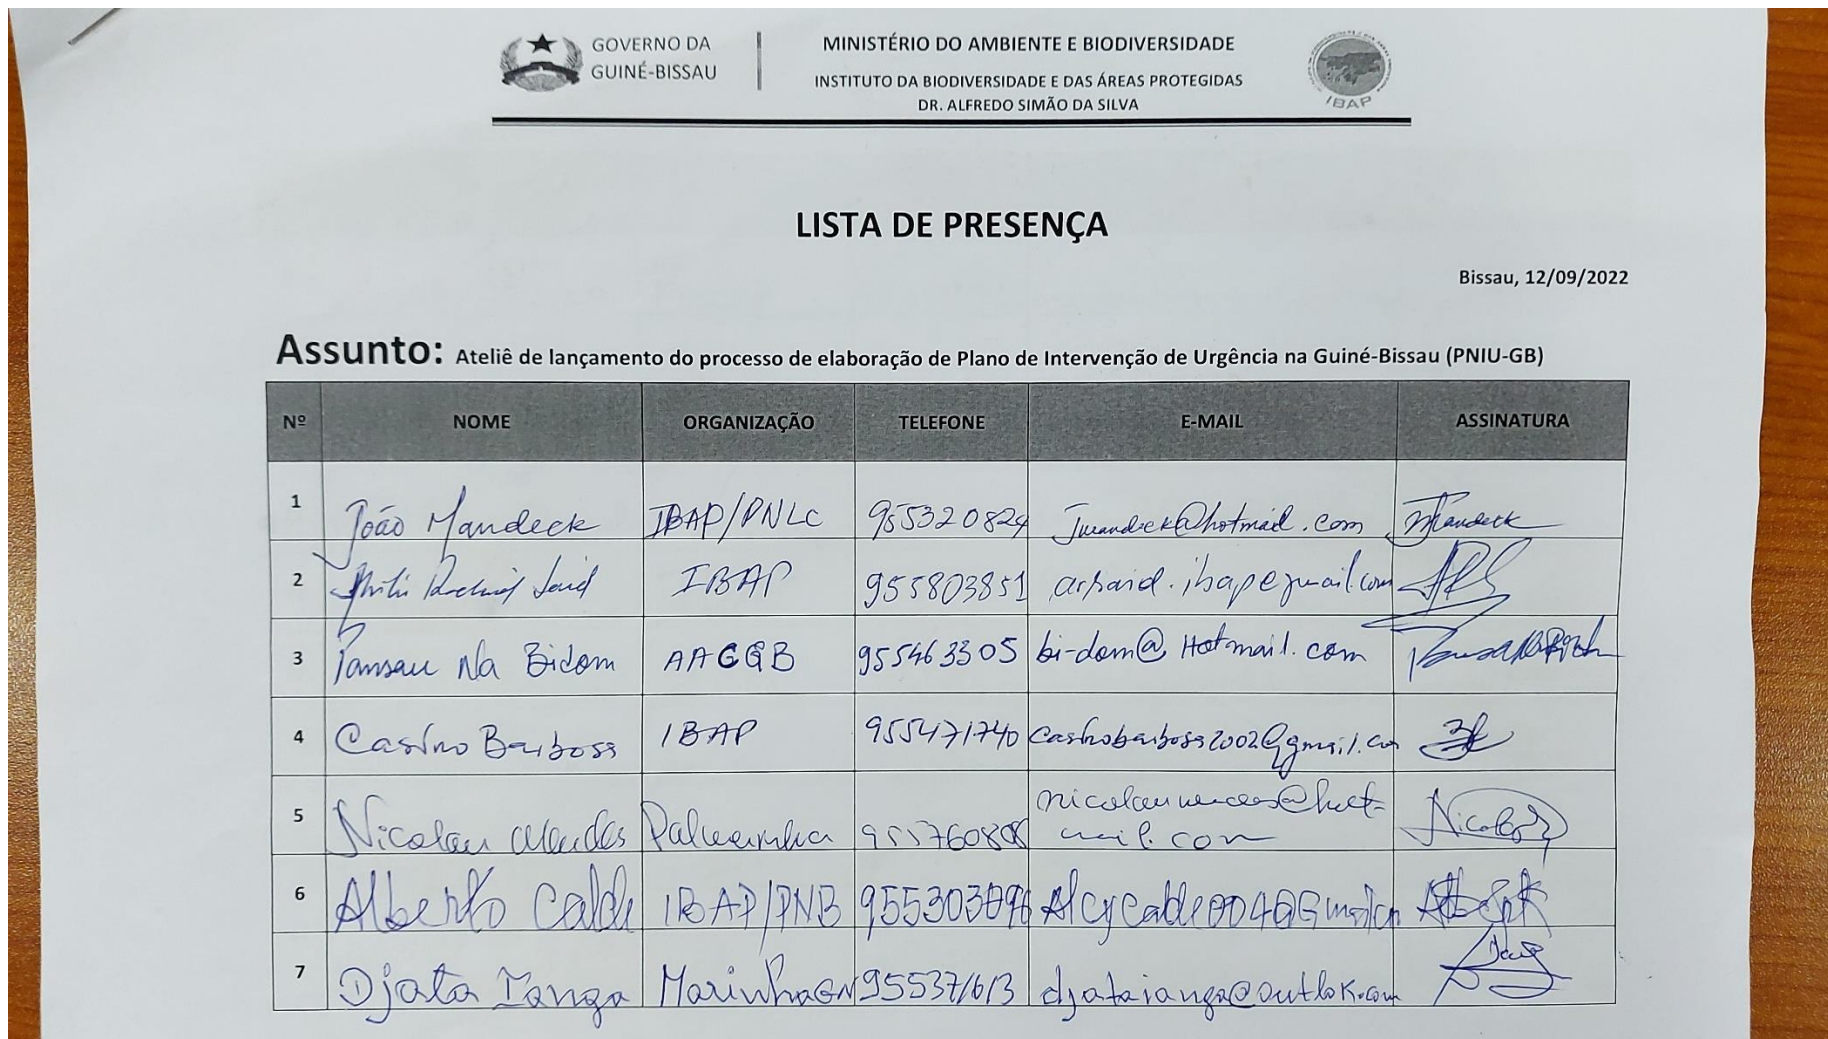 GOVERNO DA
GUINÉ-BISSAU
MINISTÉRIO DO AMBIENTE E BIODIVERSIDADE
INSTITUTO DA BIODIVERSIDADE E DAS ÁREAS PROTEGIDAS
DR. ALFREDO SIMÃO DA SILVA
IBAP
LISTA DE PRESENÇA
Bissau, 12/09/2022
Assunto: Ateliê de lançamento do processo de elaboração de Plano de Intervenção de Urgência na Guiné-Bissau (PNIU-GB)
Nº NOME ORGANIZAÇÃO TELEFONE E-MAIL ASSINATURA
1 João Mandeck IBAP/PNLC 955320824 Jmandeck@hotmail.com JMandeck
2 Said IBAP 955803851 arsaid.ibap@gmail.com
3 Pansau Na Bidom 955463305 bi-dom@Hotmail.com
4 Castro Barbosa IBAP 955471740 castrobarbosa2002@gmail.com
5 Nicolau Mendes Palmeirinha 955760808 nicolaumendes@hot-
mail.com
6 Alberto Calde IBAP/PNB
7 Djata Ianga MarinhaGN 955371613 djataianga@outlok.com